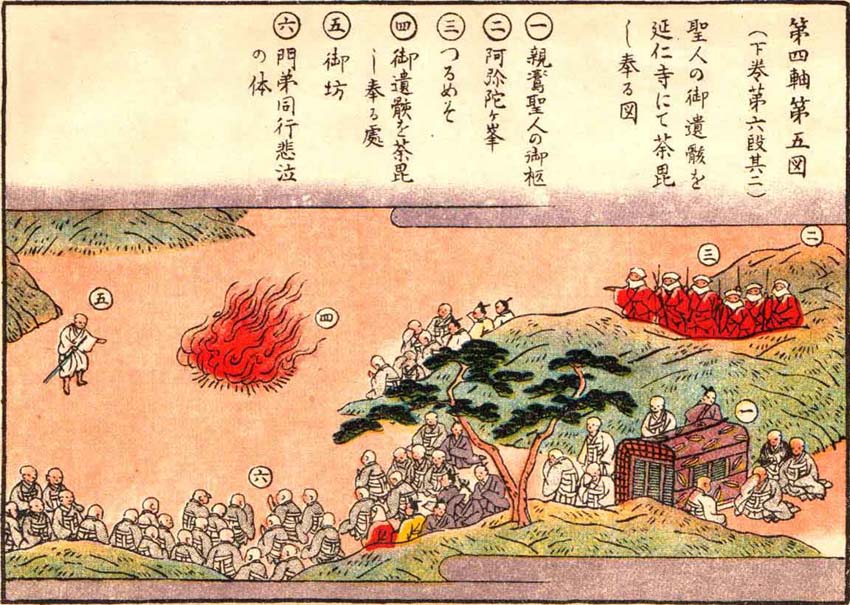 第四軸第五図
(下巻第六段其二)
聖人の御遺骸を
延仁寺にて荼毘
し奉る図
一 親鸞聖人の御柩
二 阿弥陀ヶ峯
三 つるめそ
四 御遺骸を荼毘
し奉る處
五 御坊
六 門弟同行悲泣
の体
二
三
一
四
五
六